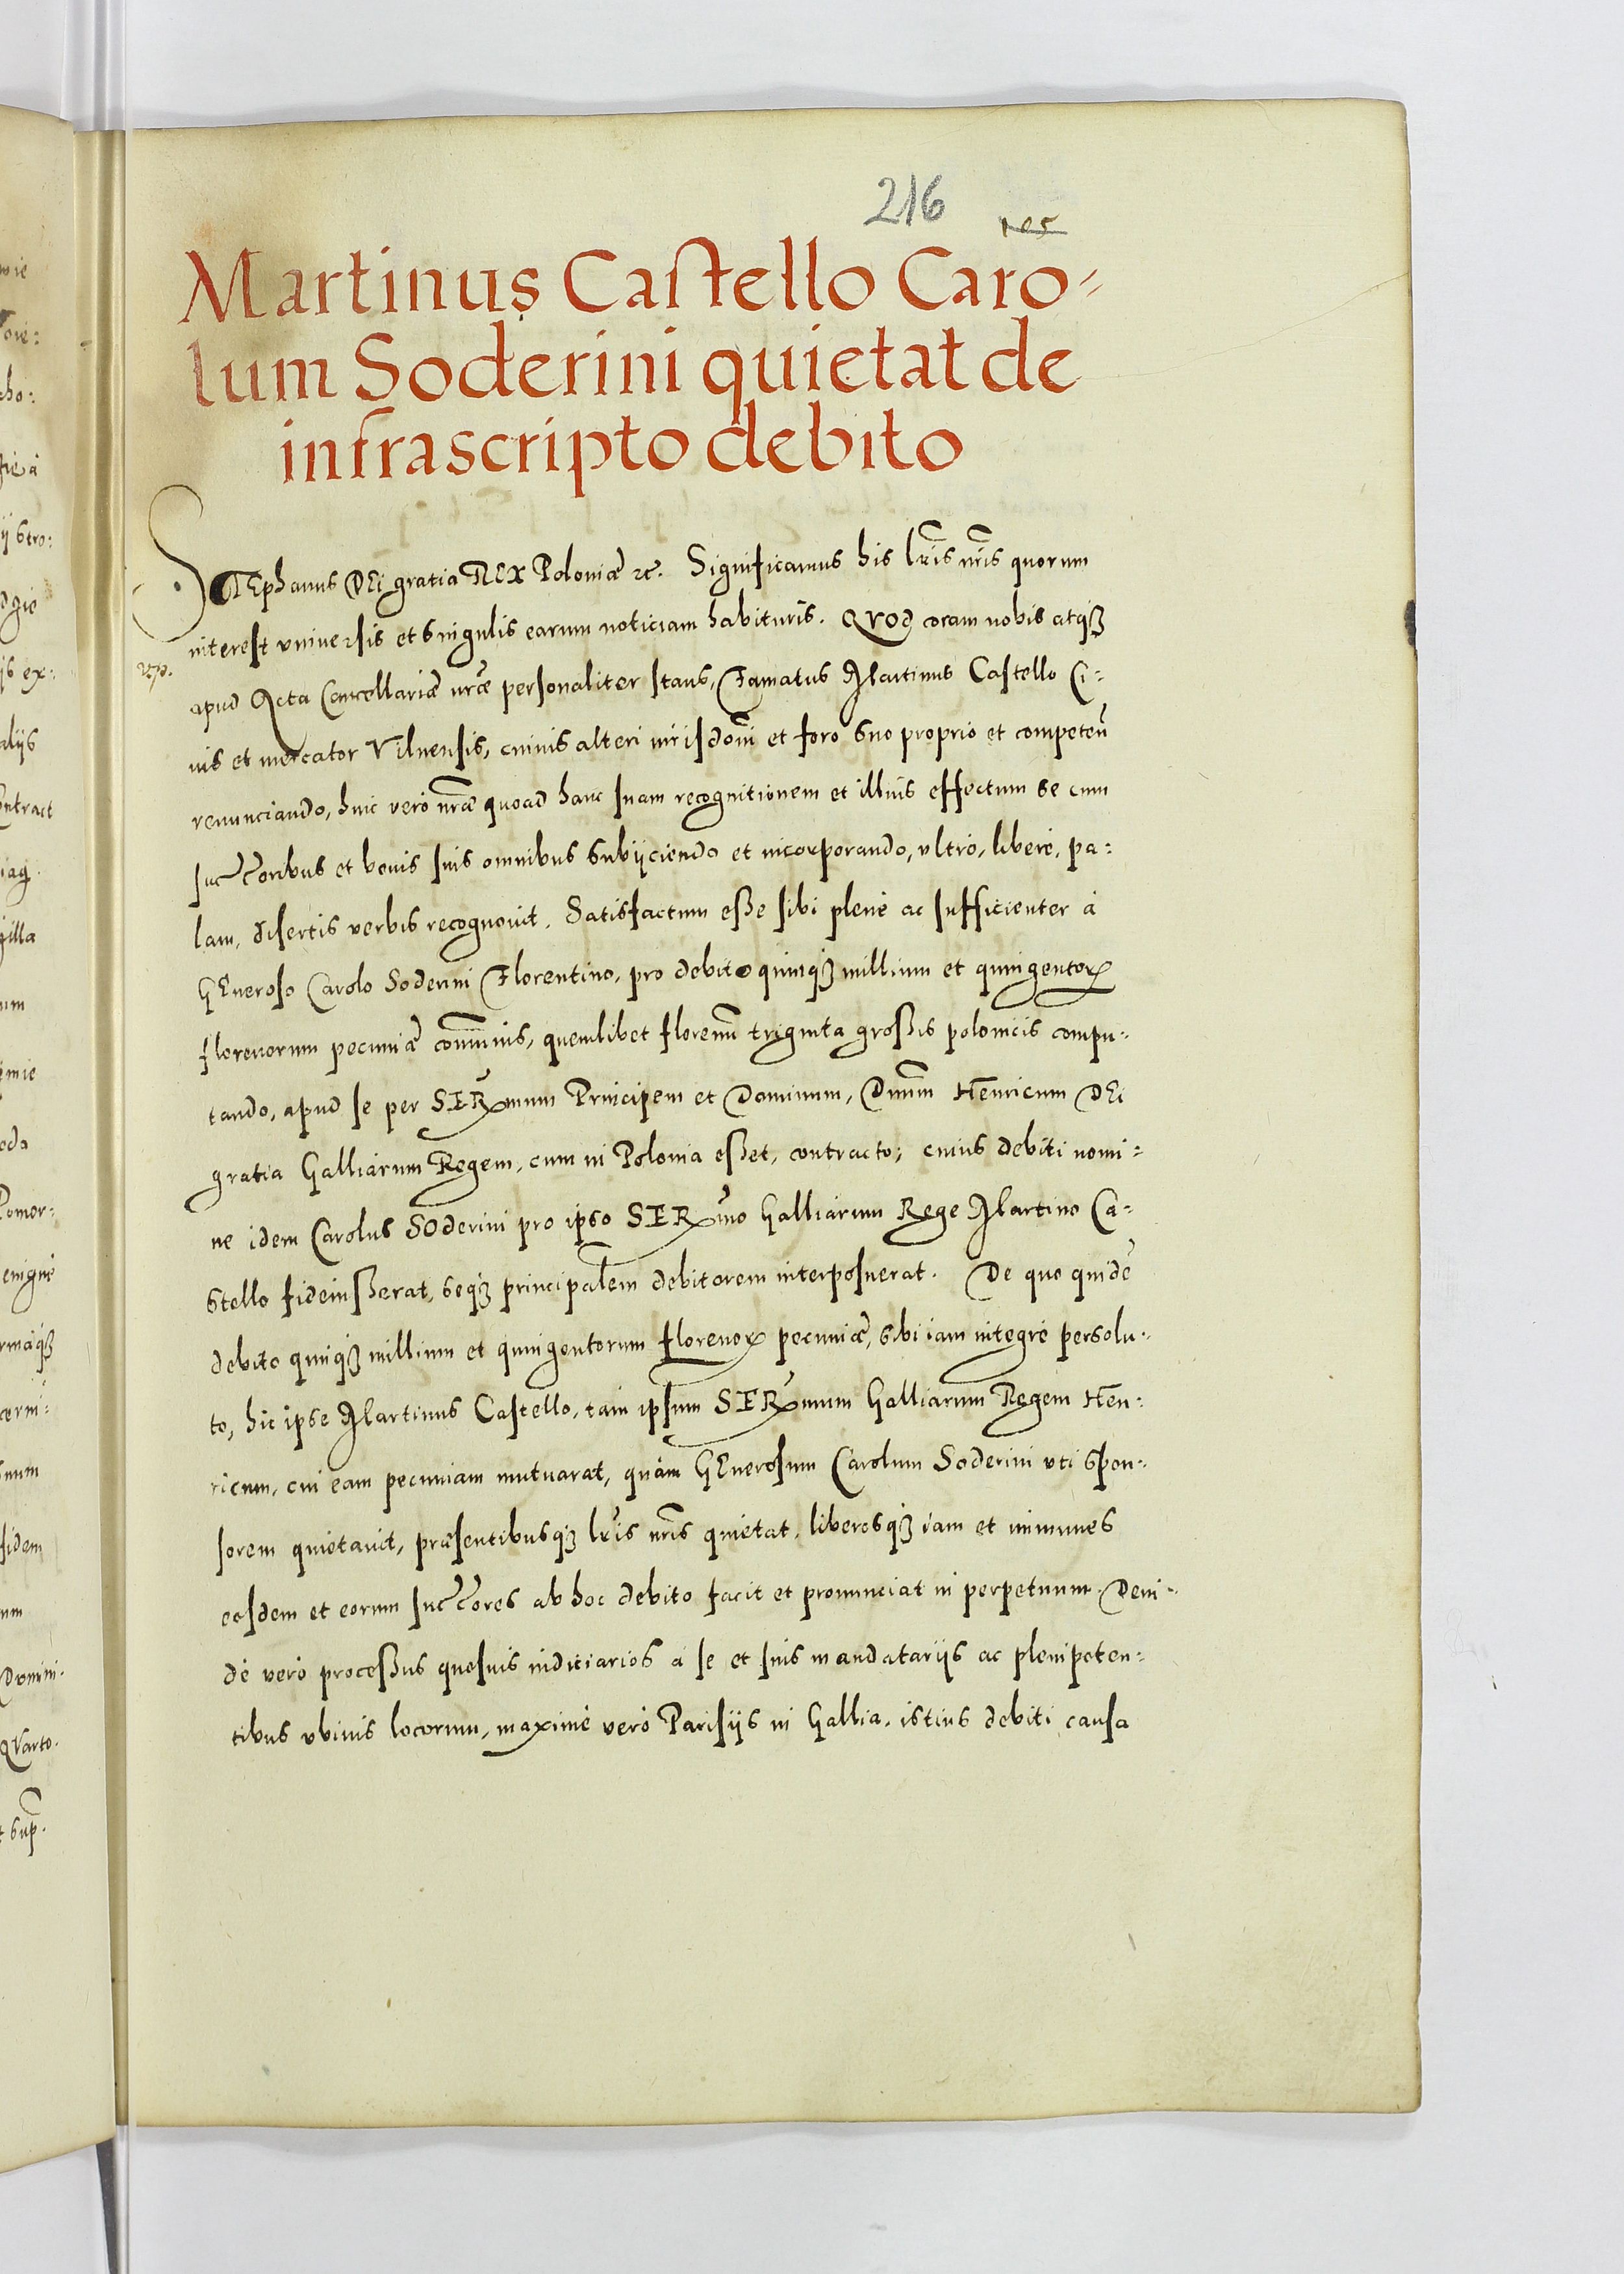 216
Martinus Castello Caro-
lum Soderini quietat de
infrascripto debito
STEphanus DEi gratia REX Poloniæ &c. Significamus his lr̃is nr̃is quorum
interest vniuersis et singulis earum noticiam habituris. QVOd coram nobis atqꝫ
apud Acta Cancellariæ nr̃æ personaliter stans, Famatus Martinus Castello Ci-
uis et mercator Vilnensis, cuiuis alteri iurisdõni et foro suo proprio et competenj̃
renunciando, huic verò nr̃æ quoad hanc suam recognitionem et illius effectum se cum
succ̃oribus et bonis suis omnibus subijciendo et incorporando, vltrò, liberè, pa-
lam, disertis verbis recognouit. Satisfactum esse sibi plenè ac sufficienter à
GEneroso Carolo Soderini Florentino, pro debito quinqꝫ millium et quingentoꝝ
florenorum pecuniæ com̃unis, quemlibet florenũ triginta grossis polonicis compu-
tando, apud se per SERmum Principem et Dominum, Dnum̃ Henricum DEi
gratia Galliarum Regem, cum in Polonia esset, contracto; cuius debiti nomi-
ne idem Carolus SOderini pro ipso SERmo Galliarum Rege Martino Ca-
stello fideiusserat, seqꝫ principalem debitorem interposuerat. De quo quidẽ
debito quinqꝫ millium et quingentorum florenoꝝ pecuniæ, sibi iam integrè persolu-
to, hic ipse Martinus Castello, tam ipsum SERmum Galliarum Regem Hen-
ricum, cui eam pecuniam mutuarat, quàm GEnerosum Carolum Soderini vti spon-
sorem quietauit, præsentibusqꝫ lr̃is nr̃is quietat, liberosqꝫ iam et immunes
eosdem et eorum succ̃ores ab hoc debito facit et pronunciat in perpetuum. Dein-
dè verò processus quosuis iudiciarios à se et suis mandatarijs ac plenipoten-
tibus vbiuis locorum, maximè verò Parisijs in Gallia, istius debiti causa